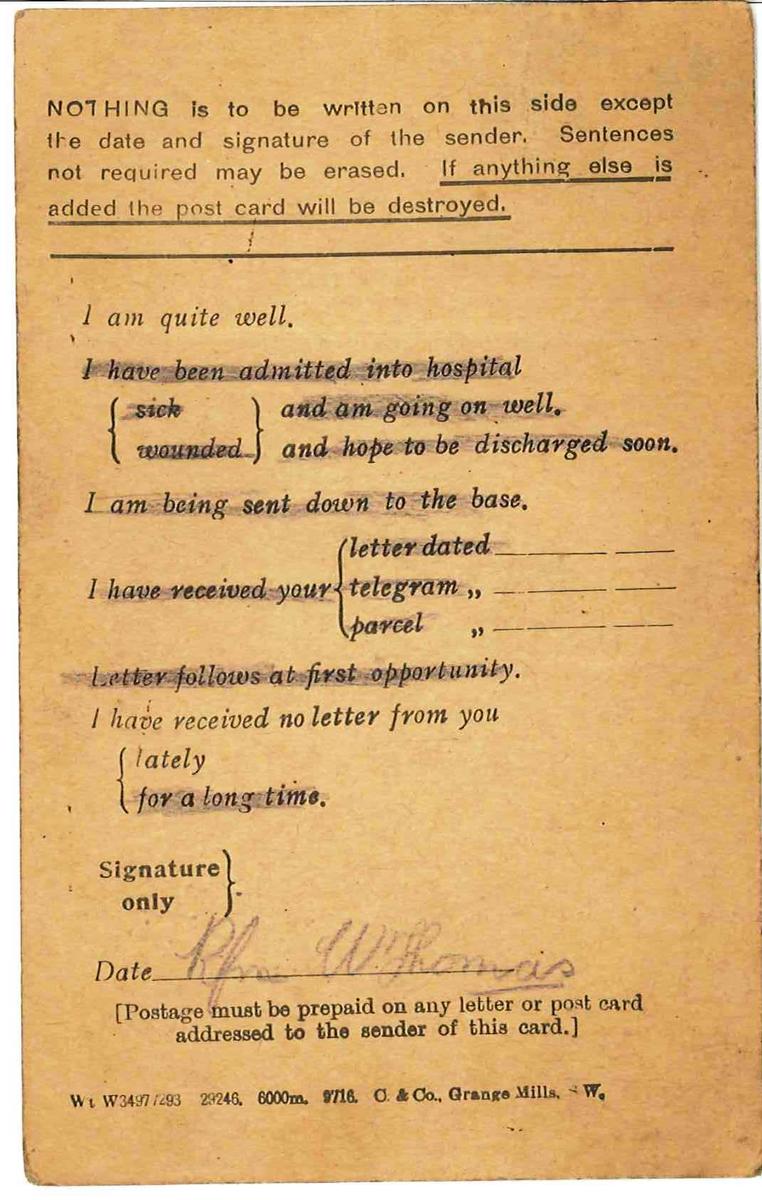 NOTHING is to be written on this side except
the date and signature of the sender. Sentences
not required may be erased. If anything else is
added the post card will be destroyed.
I am quite well.
I have been admitted into hospital
sick and am going on well.
wounded and hope to be discharged soon.
I am being sent down to the base.
letter dated
I have received your telegram „
parcel „
Letter follows at first opportunity.
I have received no letter from you
lately
for a long time.
Signature
only
Date Rfn W Thomas
[Postage must be prepaid on any letter or post card
addressed to the sender of this card.]
Wt W3497/293 29246. 6000m. 9/16. C. & Co., Grange Mills, W.